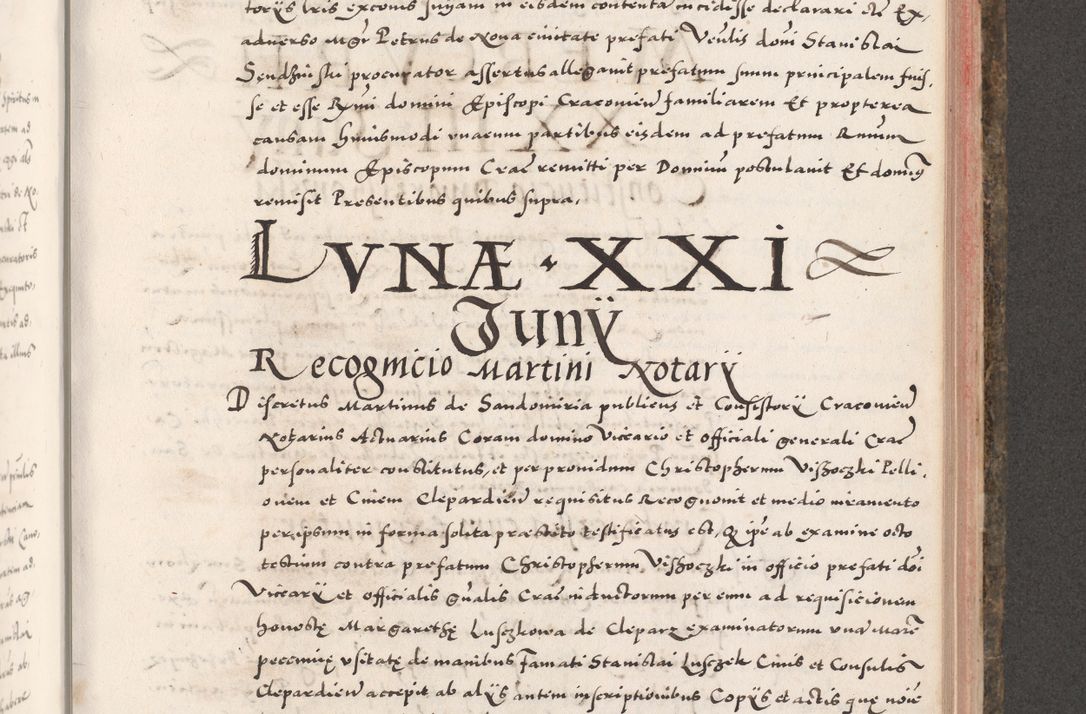 torys lris excomis suyam in eisdem contenta incidesse declarari etc Ex
adverso Mgr Petrus de Nova civitate prefati Venlis domi Stanislai
Sendzinski procurator assertus allegavit prefatum suum principalem fuis,
se et esse Rxmi domini Episcopi Cracovien familiarem Et propterea
causam huiusmodi unacum partibus eisdem ad prefatum Rmum
dominum Episcopum Crac remitti per Dominum postulavit Et dominus
remisit Presentibus quibus supra,
LVNÆ · XXI
Junÿ
Recognicio Martini Notarÿ
Discretus Martinus de Sandomiria publicus et Consistorÿ Cracovien
Notarius Actuarius Coram domino Vicario et officiali generali Crac
personaliter constitutus, et per providum Christopherum Viszoczki Pelli,
onem et Civem Clepardien requisitus Recognovit et medio iuramento
per ipsum in forma solita præstito testificatus est, Q ipse ab examine octo
testium contra prefatum Christopherum Viszoczki in officio prefati doi
Vicarÿ et officialis gnalis Crac inductorum per eum ad requisicionem
honestę Margarethę Lusczkowa de Cleparz examinatorum una Marc
pecunię usitatę de manibus famati Stanislai Lusczek Civis et Consulis
Clepardien accepit ab alÿs autem inscriptionibus Copÿs et actis quę noie